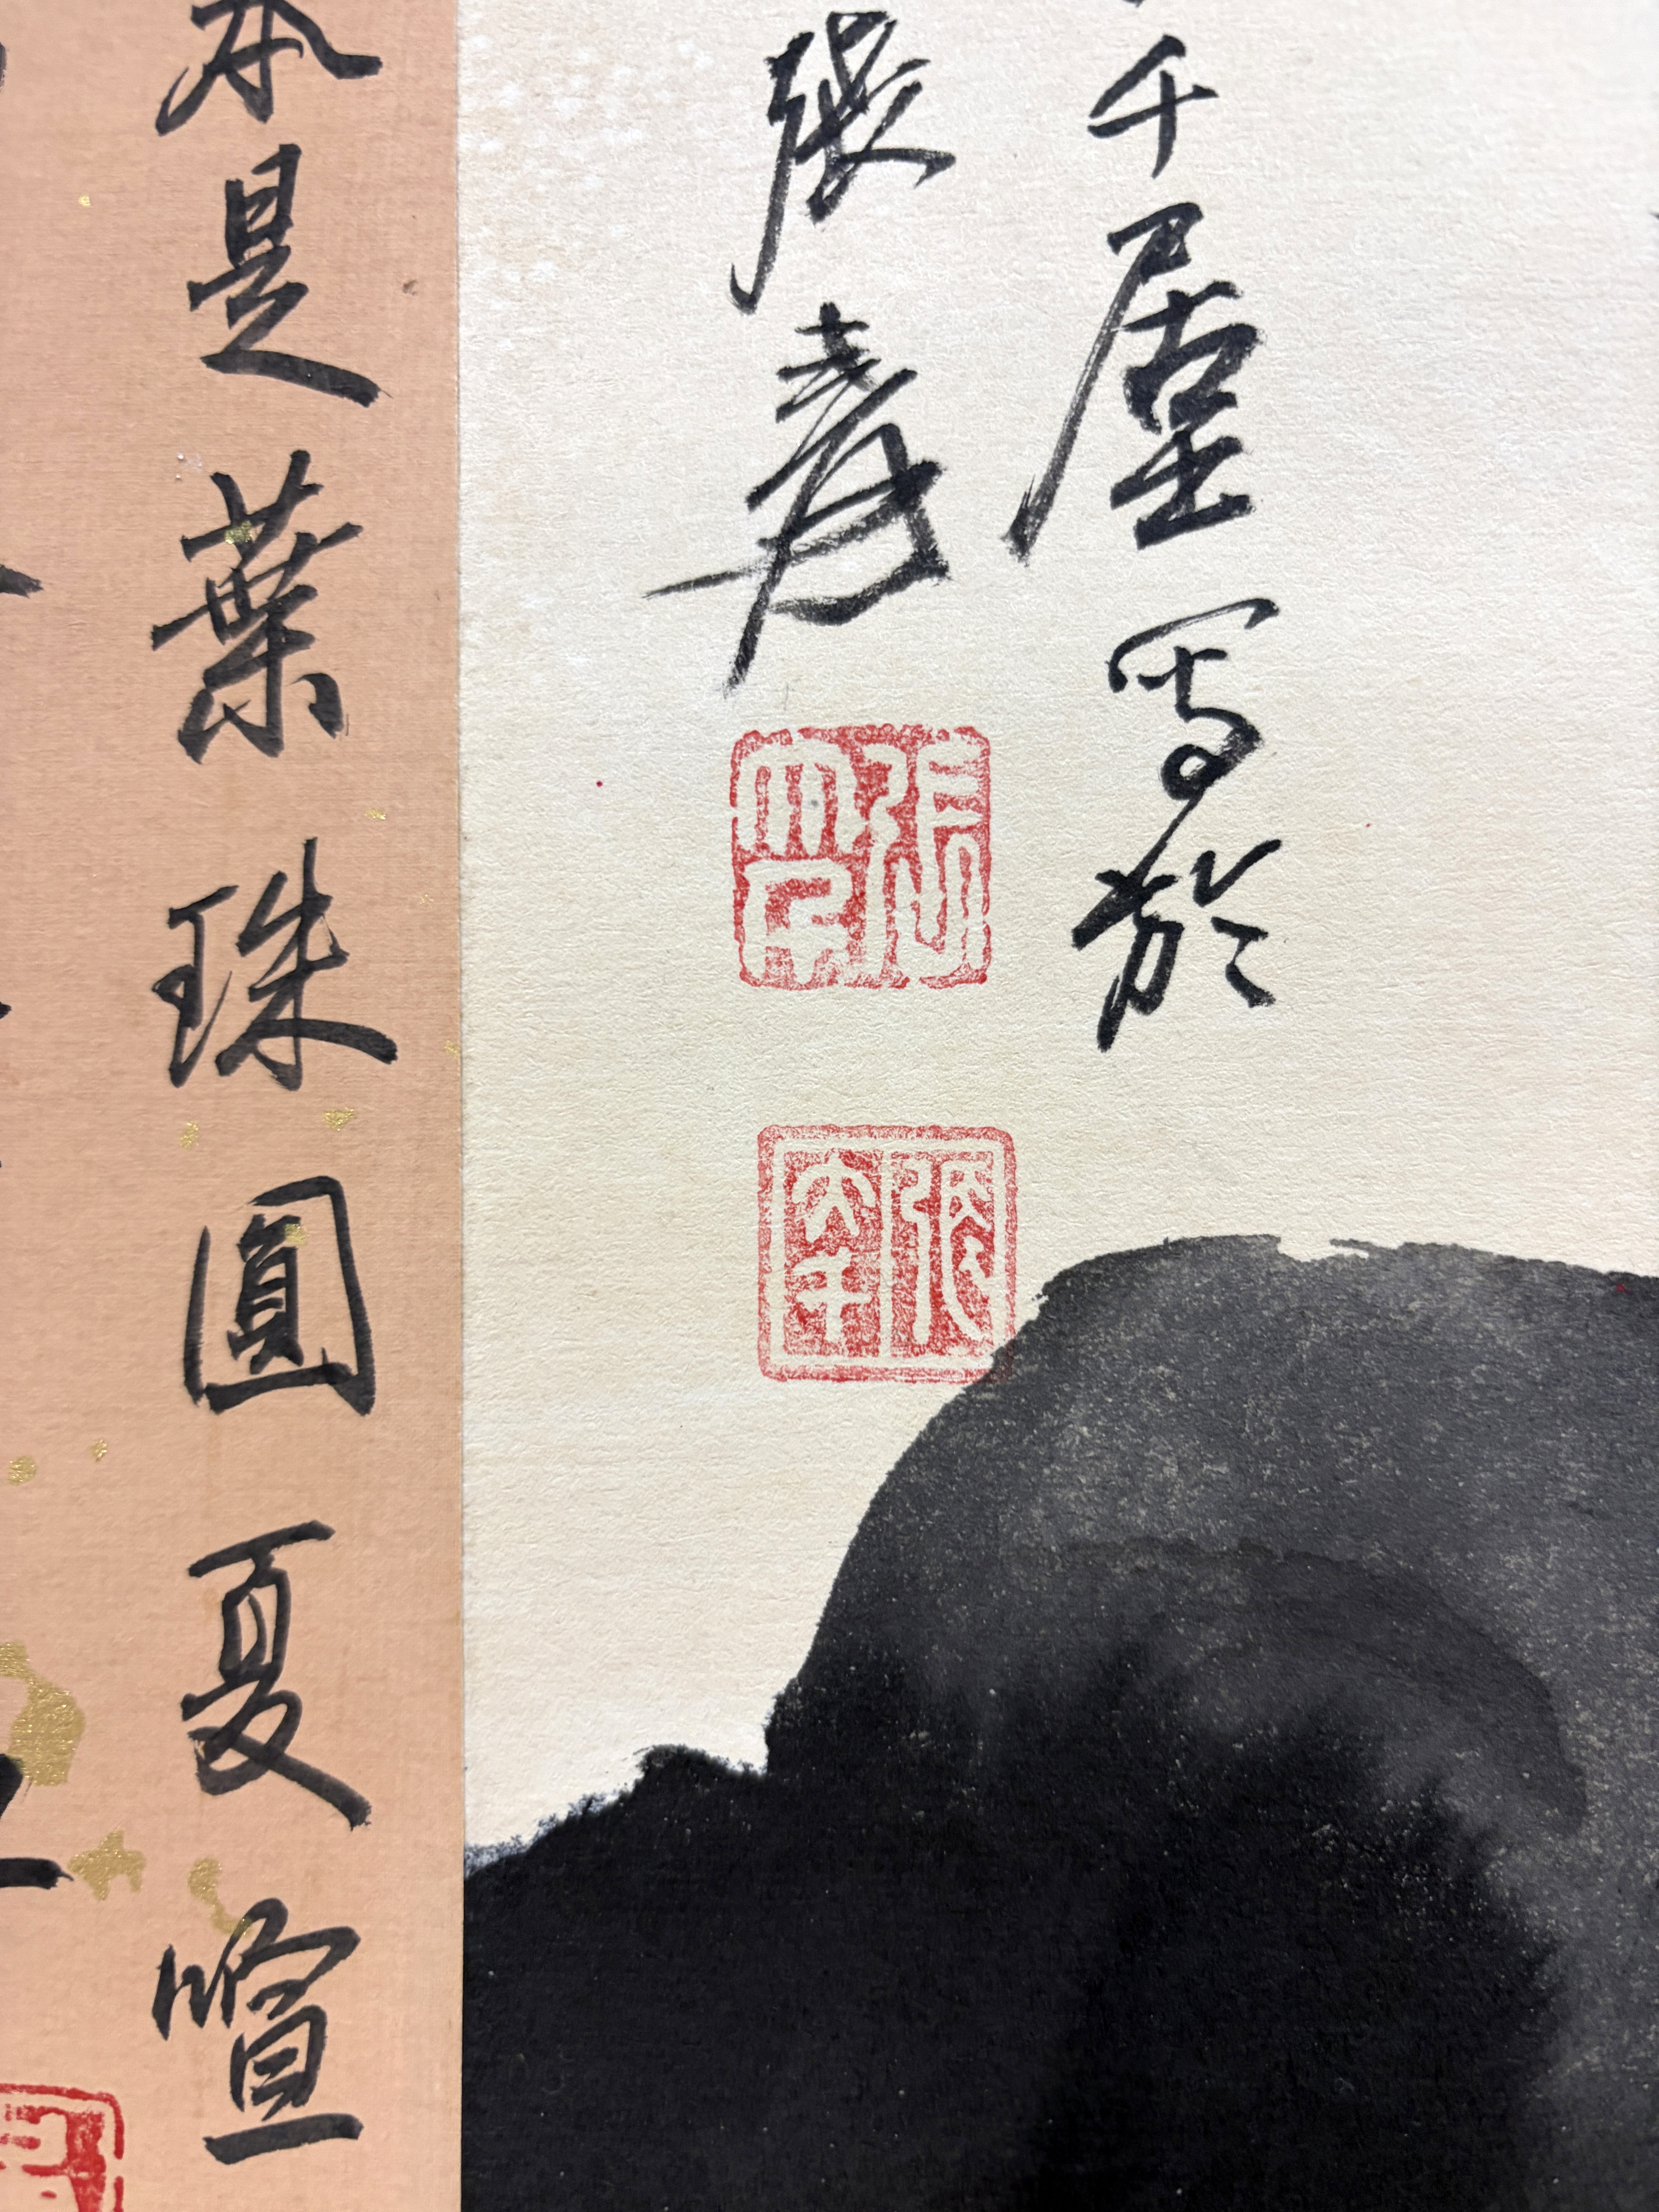 千居士寫於
張爰
張大千
本是葉珠圓夏喧